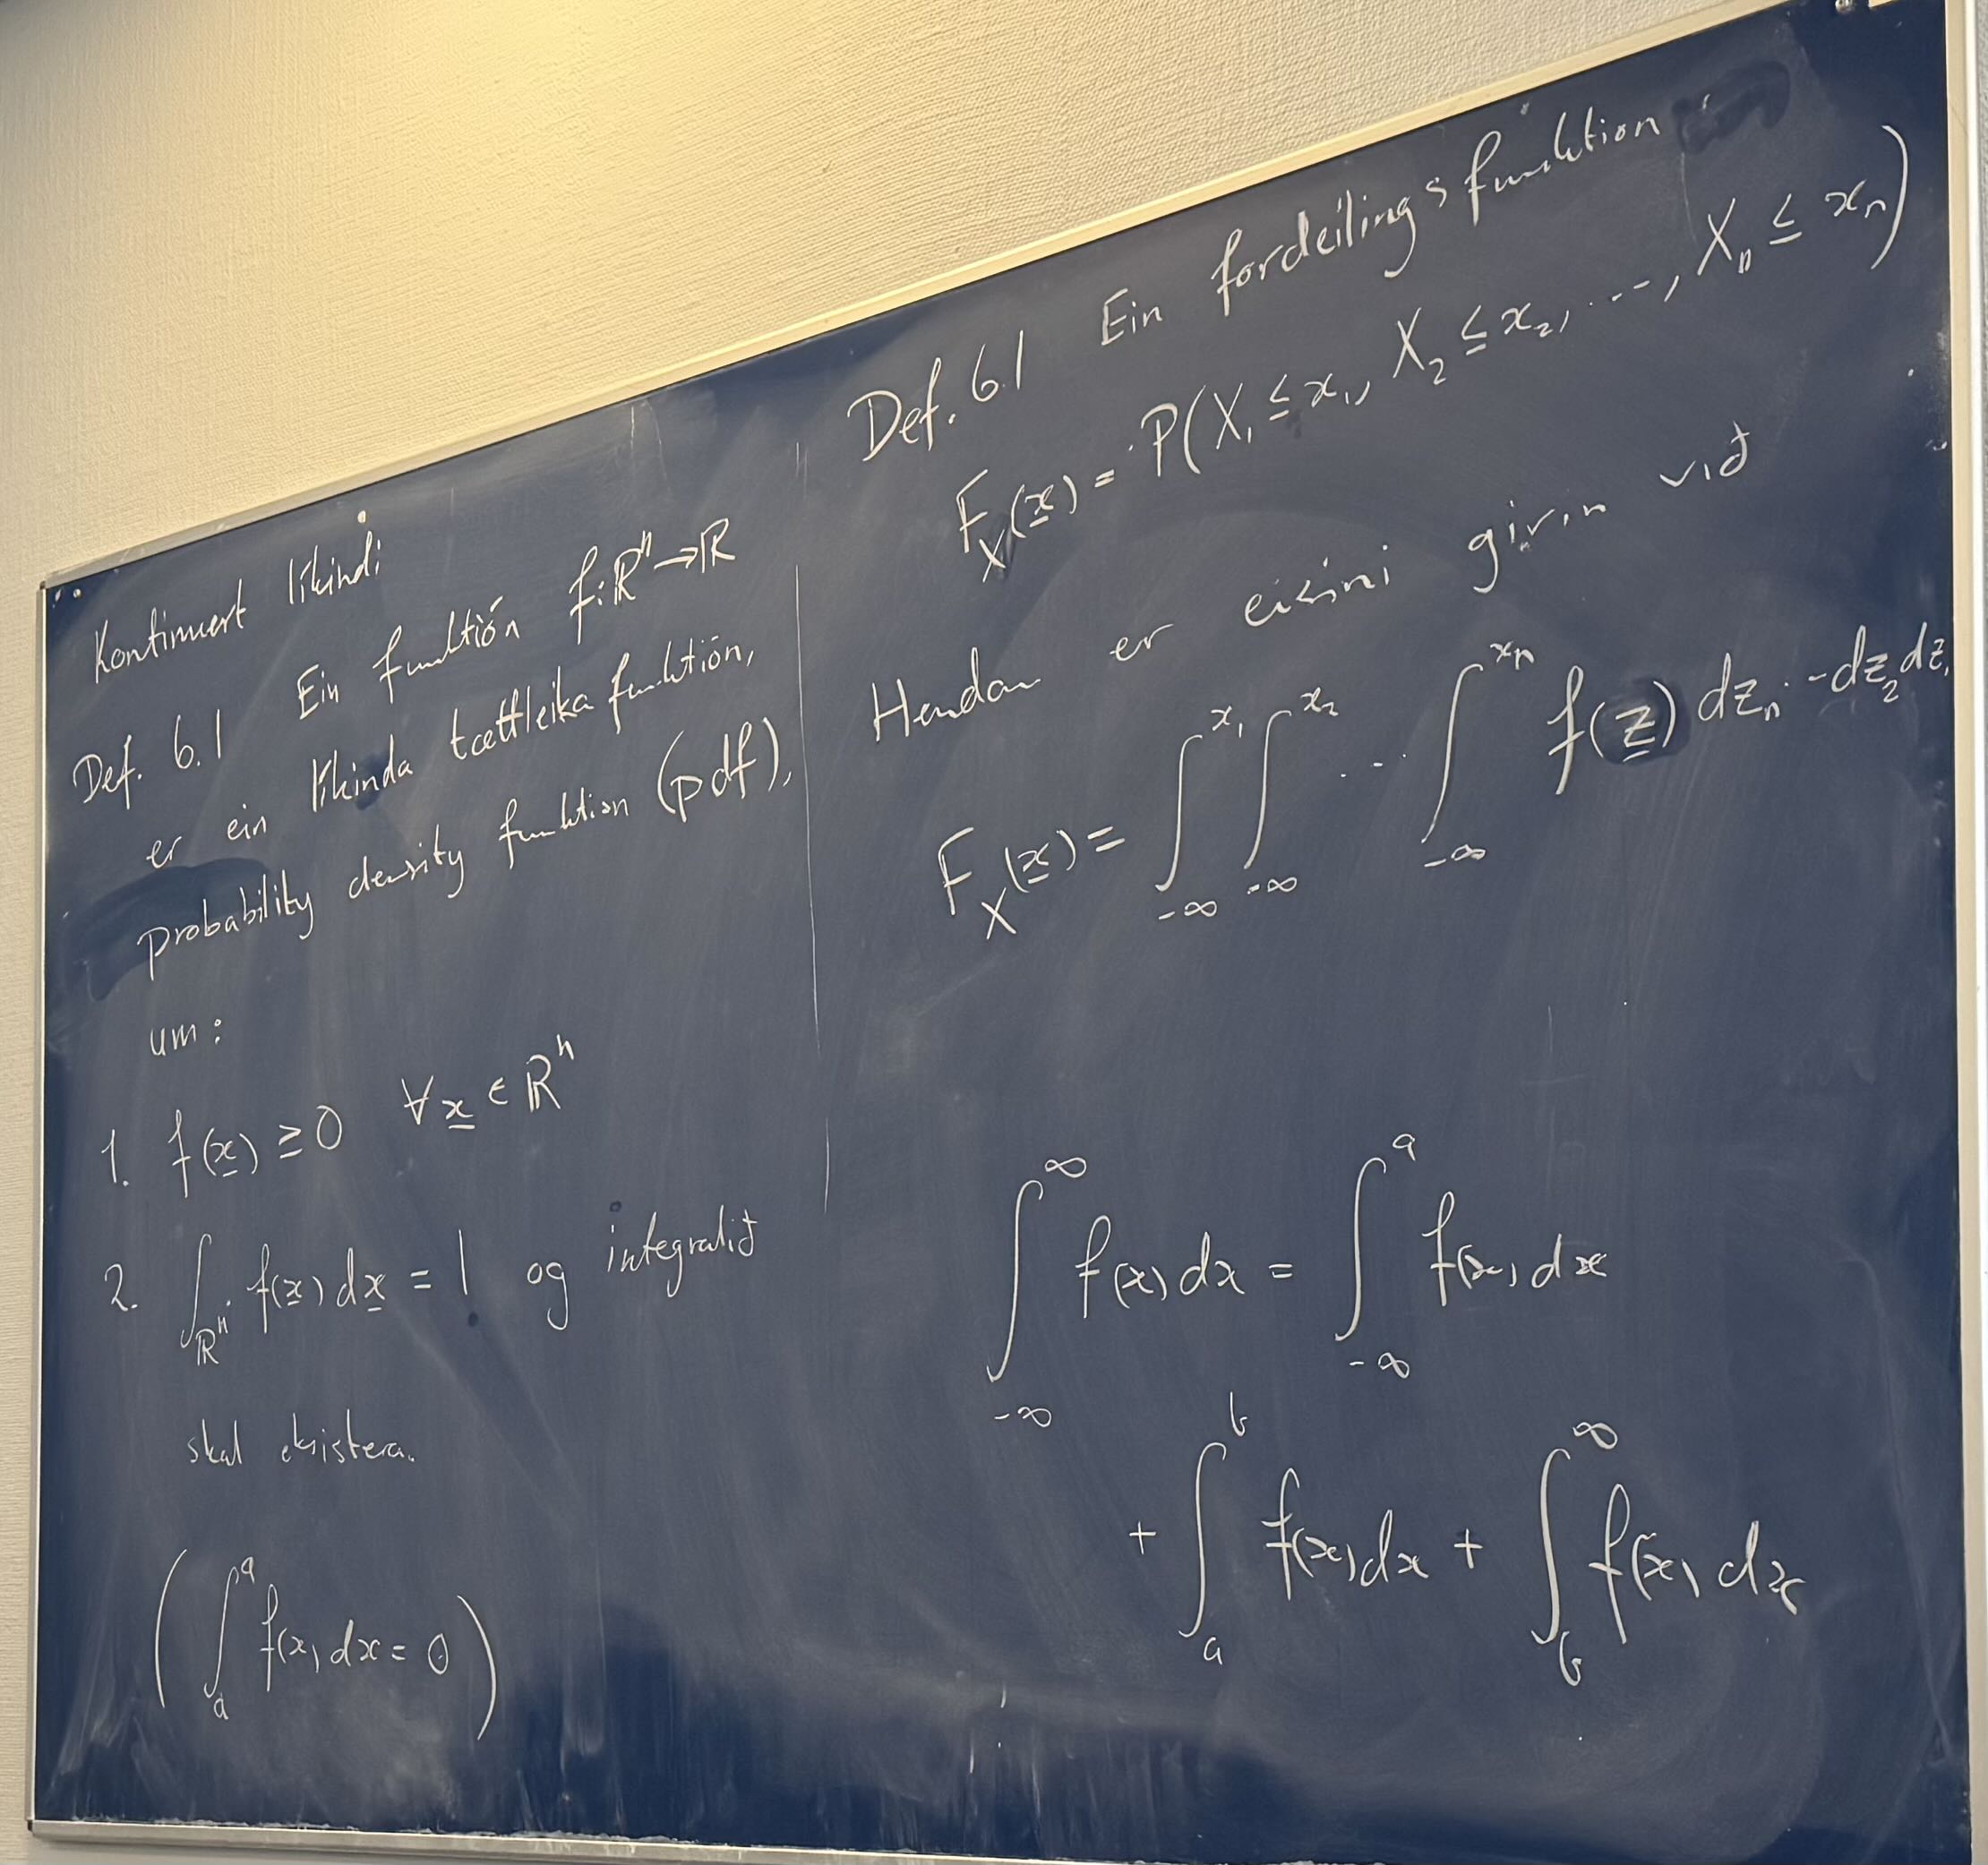 Kontinuert líkindi
Def. 6.1 Ein funktión f: ℝⁿ → ℝ
er ein líkinda tættleika funktión,
probability density funktion (pdf),
um:
1. f(x̲) ≥ 0 ∀ x̲ ∈ ℝⁿ
2. ∫_{ℝⁿ} f(x̲) dx̲ = 1 og integralið
skal eksistera.
( ∫_a^a f(x) dx = 0 )
Def. 6.1 Ein fordeilings funktion
F_X(x̲) = P(X₁ ≤ x₁, X₂ ≤ x₂, ..., Xₙ ≤ xₙ)
Hendan er eisini givin við
F_X(x̲) = ∫_{-∞}^{x₁} ∫_{-∞}^{x₂} ... ∫_{-∞}^{xₙ} f(z̲) dzₙ ... dz₂ dz₁
∫_{-∞}^{∞} f(x) dx = ∫_{-∞}^{a} f(x) dx
+ ∫_a^b f(x) dx + ∫_b^{∞} f(x) dx